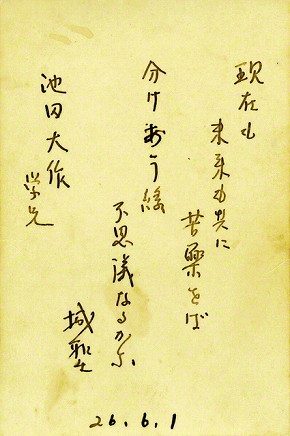 現在も
未来も共に
苦楽をば
分けあう縁
不思議なるかな
池田大作
学兄
城聖
26.6.1